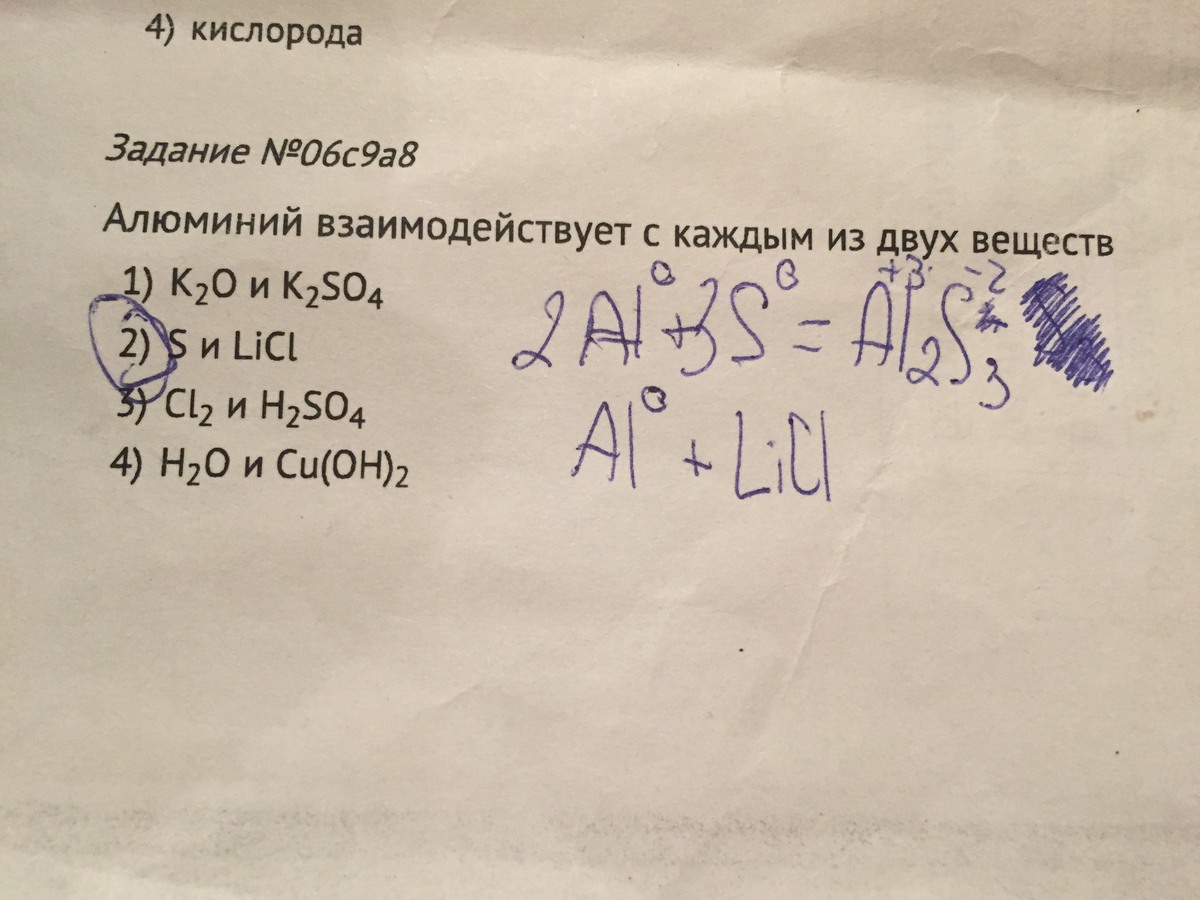 4) кислорода
Задание №06c9a8
Алюминий взаимодействует с каждым из двух веществ
1) K₂O и K₂SO₄
2) S и LiCl
3) Cl₂ и H₂SO₄
4) H₂O и Cu(OH)₂
2Al⁰ + 3S⁰ = Al₂⁺³S₃⁻²
Al⁰ + LiCl